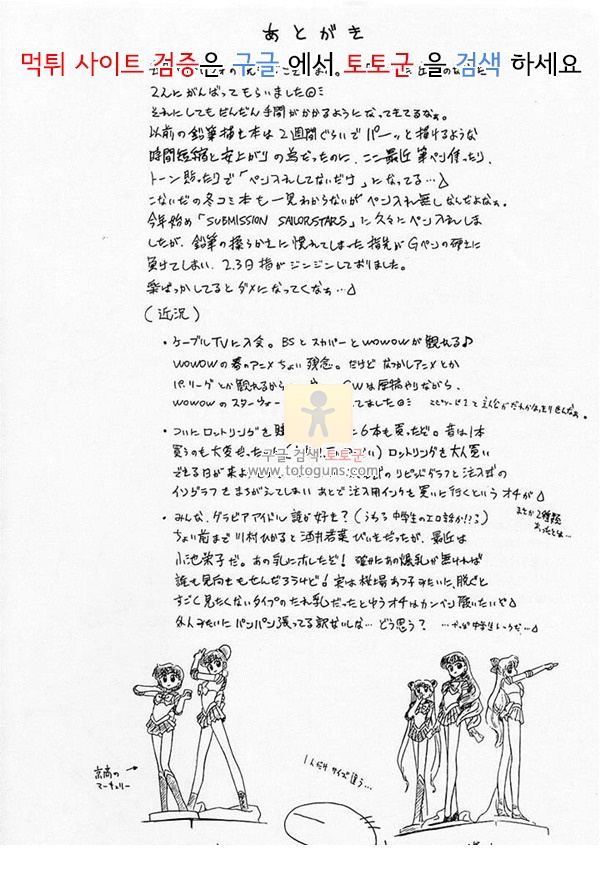 あとがき
먹튀 사이트 검증은 구글 에서 토토군 을 검색 하세요
2人にがんばってもらいました
それにしてもだんだん手間がかかるようになってきてるなぁ。
以前の鉛筆描き本は2週間ぐらいでパーッと描けるような
時間短縮と安上がりの為だったのに、ここ最近筆ペン使ったり、
トーン貼ったりで「ペン入れしてないだけ」になってる…
こないだの冬コミ本も一見わからないがペン入れ無しなんだよなぁ。
今年始め「SUBMISSION SAILORSTARS」に久々にペン入れしま
したが、鉛筆の柔らかさに慣れてしまった指先がGペンの硬さに
負けてしまい、2.3日指がジンジンしておりました。
楽ばっかしてるとダメになってくなぁ…
(近況)
・ケーブルTVに入会。BSとスカパーとWOWOWが観れる♪
WOWOWの春のアニメちょい残念。だけどなつかしアニメとか
パ・リーグとか観れるから GWは原稿やりながら、
WOWOWのスターウォー てました
・ついにロットリングを 6本も買ったぞ。昔は1本
買うのも大変だった ロットリングを大人買い
できる日が来よ
구글 검색 토토군
www.totoguns.com
のラピッドグラフと注入式の
イソグラフをまちがえてしまいあとで注入用インクを買いに行くというオチが
まさか2種類あったとは…
・みんな、グラビアアイドル誰が好き?(うわっ中学生のエロ話か!?)
ちょい前まで川村ひかると酒井若菜びいきだったが、最近は
小池栄子だ。あの乳にホレたぞ! 確かにあの爆乳が無ければ
誰も見向きもせんだろうけど! 実は 脱ぐと
すごく見たくないタイプのたれ乳だったとゆうオチはカンベン願いたいぞ
外人みたいにパンパン張ってる訳ないしな…どう思う?
京南のマーキュリー
1人だけサイズ違う…